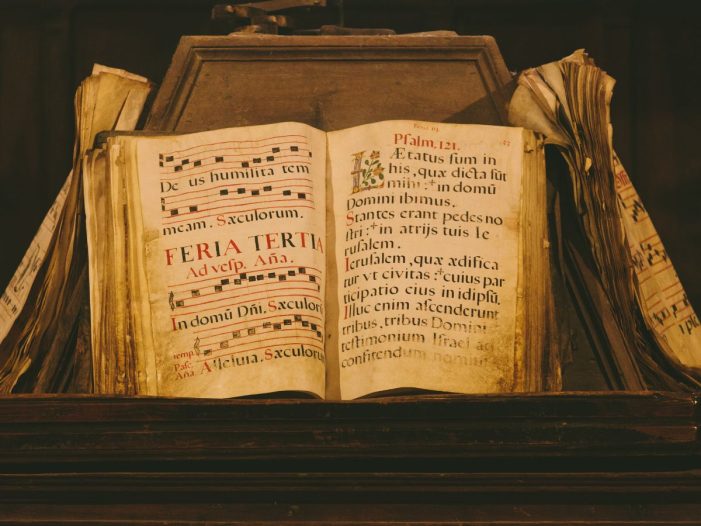 De us humilita tem
meam. Sæculorum.
FERIA TERTIA
Ad vesp. Aña.
In domũ Dñi. Sæculorum
temp.
Pasc.
Aña.
Alleluia. Sæculorum.
Psalm. 121.
LÆtatus sum in
his, quæ dicta sũt
mihi: in domũ
Domini ibimus.
Stantes erant pedes no
stri: in atrijs tuis Ie
rusalem.
Ierusalem, quæ ædifica
tur vt civitas: cuius par
ticipatio eius in idipsũ.
Illuc enim ascenderunt
tribus, tribus Domini
testimonium Israel
confitendum nomini